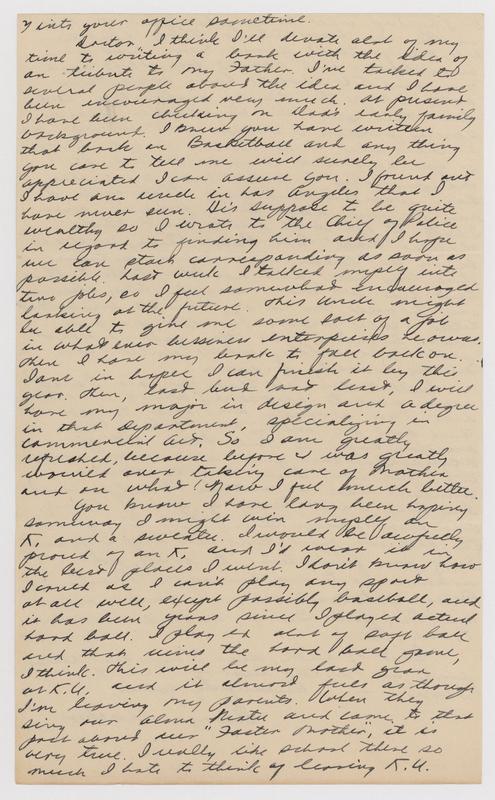 into your office sometime.
Doctor, I think I'll devote alot of my
time to writing a book with the idea of
an tribute to my Father. I've talked to
several people about the idea and I have
been encouraged very much. At present
I have been checking on Dad's early family
background. I know you have written
that book on Basketball and any thing
you care to tell me will surely be
appreciated I can assure you. I found out
I have an uncle in Los Angeles that I
have never seen. He's suppose to be quite
wealthy so I wrote to the Chief of Police
in regard to finding him and I hope
we can start corresponding as soon as
possible. Last week I talked myself into
two jobs, so I feel somewhat encouraged
looking at the future. This uncle might
be able to give me some sort of a job
in what ever bussiness enterprises he owns.
Then I have my book to fall back on.
I am in hopes I can finish it by this
year. Then, last but not least, I will
have my major in design and a degree
in that department, specializing in
commercial art. So I am greatly
refreshed, because before I was greatly
worried over taking care of Mother
and on what! Now I feel much better.
You know I have long been hoping
someway I might win myself an
K, and a sweater. I would be awfully
proud of an K, and I'd wear it in
the best places I went. I don't know how
I could as I can't play any sport
at all well, except possibly baseball, and
it has been years since I played actual
hard ball. I played alot of soft ball
and that ruins the hard ball game,
I think. This will be my last year
at K.U. and it almost feels as though
I'm leaving my parents. When they
sing our Alma Mater and come to that
part about our "Foster Mother", it is
very true. I really like school there so
much I hate to think of leaving K.U.